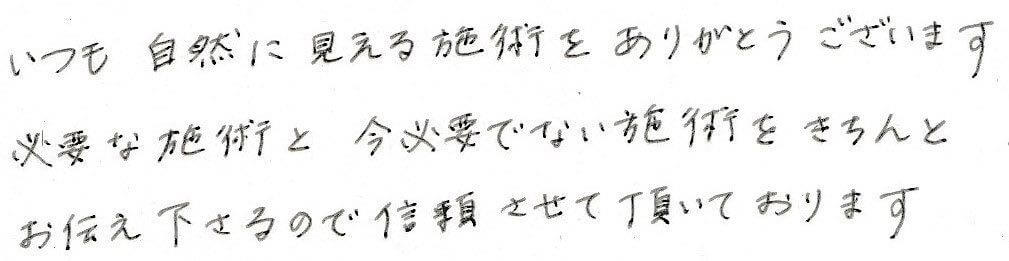 いつも 自然に 見える 施術を ありがとう ございます
必要な 施術と 今必要でない 施術を きちんと
お伝え 下さるので 信頼 させて 頂いて おります